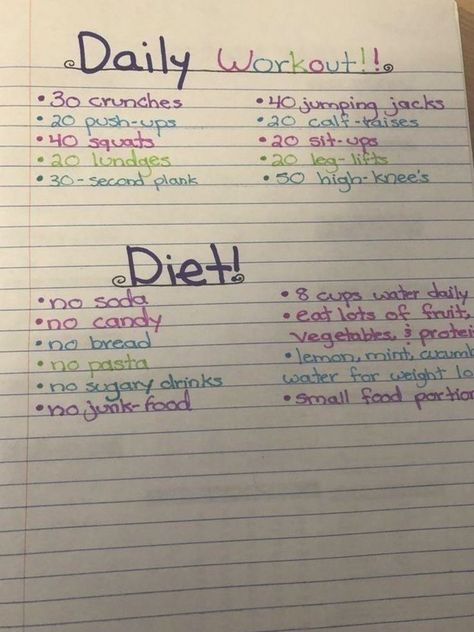 Daily Workout!!
• 30 crunches
• 20 push-ups
• 40 squats
• 20 lundges
• 30-second plank
• 40 jumping jacks
• 20 calf-raises
• 20 sit-ups
• 20 leg-lifts
• 50 high-knee's
Diet!
• no soda
• no candy
• no bread
• no pasta
• no sugary drinks
• no junk-food
• 8 cups water daily
• eat lots of fruit,
vegetables, & protei
• lemon, mint, cucumb
water for weight lo
• small food portion